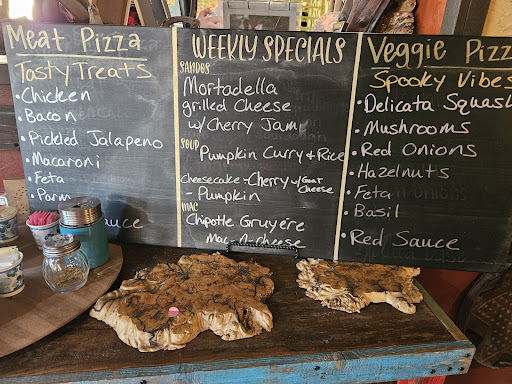 Meat Pizza
Tasty Treats
• Chicken
• Bacon
• Pickled Jalapeno
• Macaroni
• Feta
• Parm
Sauce
WEEKLY SPECIALS
SANDOS
Mortadella
grilled Cheese
w/Cherry Jam
SOUP
Pumpkin Curry + Rice
Cheesecake - Cherry w/ Goat Cheese
- Pumpkin
MAC
Chipotle Gruyere
Mac n cheese
Veggie Pizz
Spooky Vibes
• Delicata Squash
• Mushrooms
• Red Onions
• Hazelnuts
• Feta
• Basil
• Red Sauce